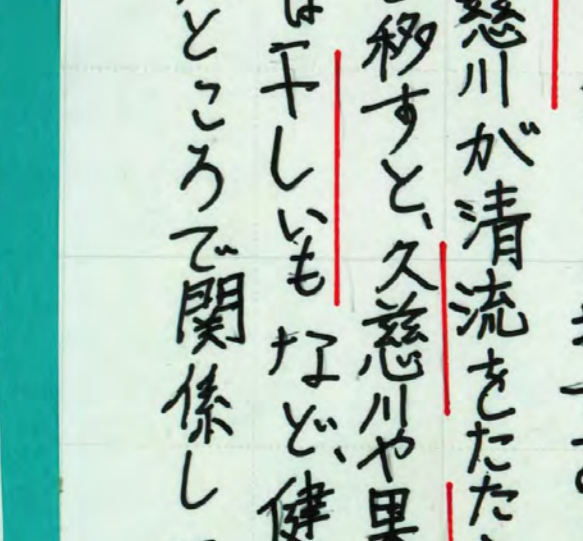 慈川が清流をたた
移すと、久慈川や果
は干しいもなど、健
ところで関係し